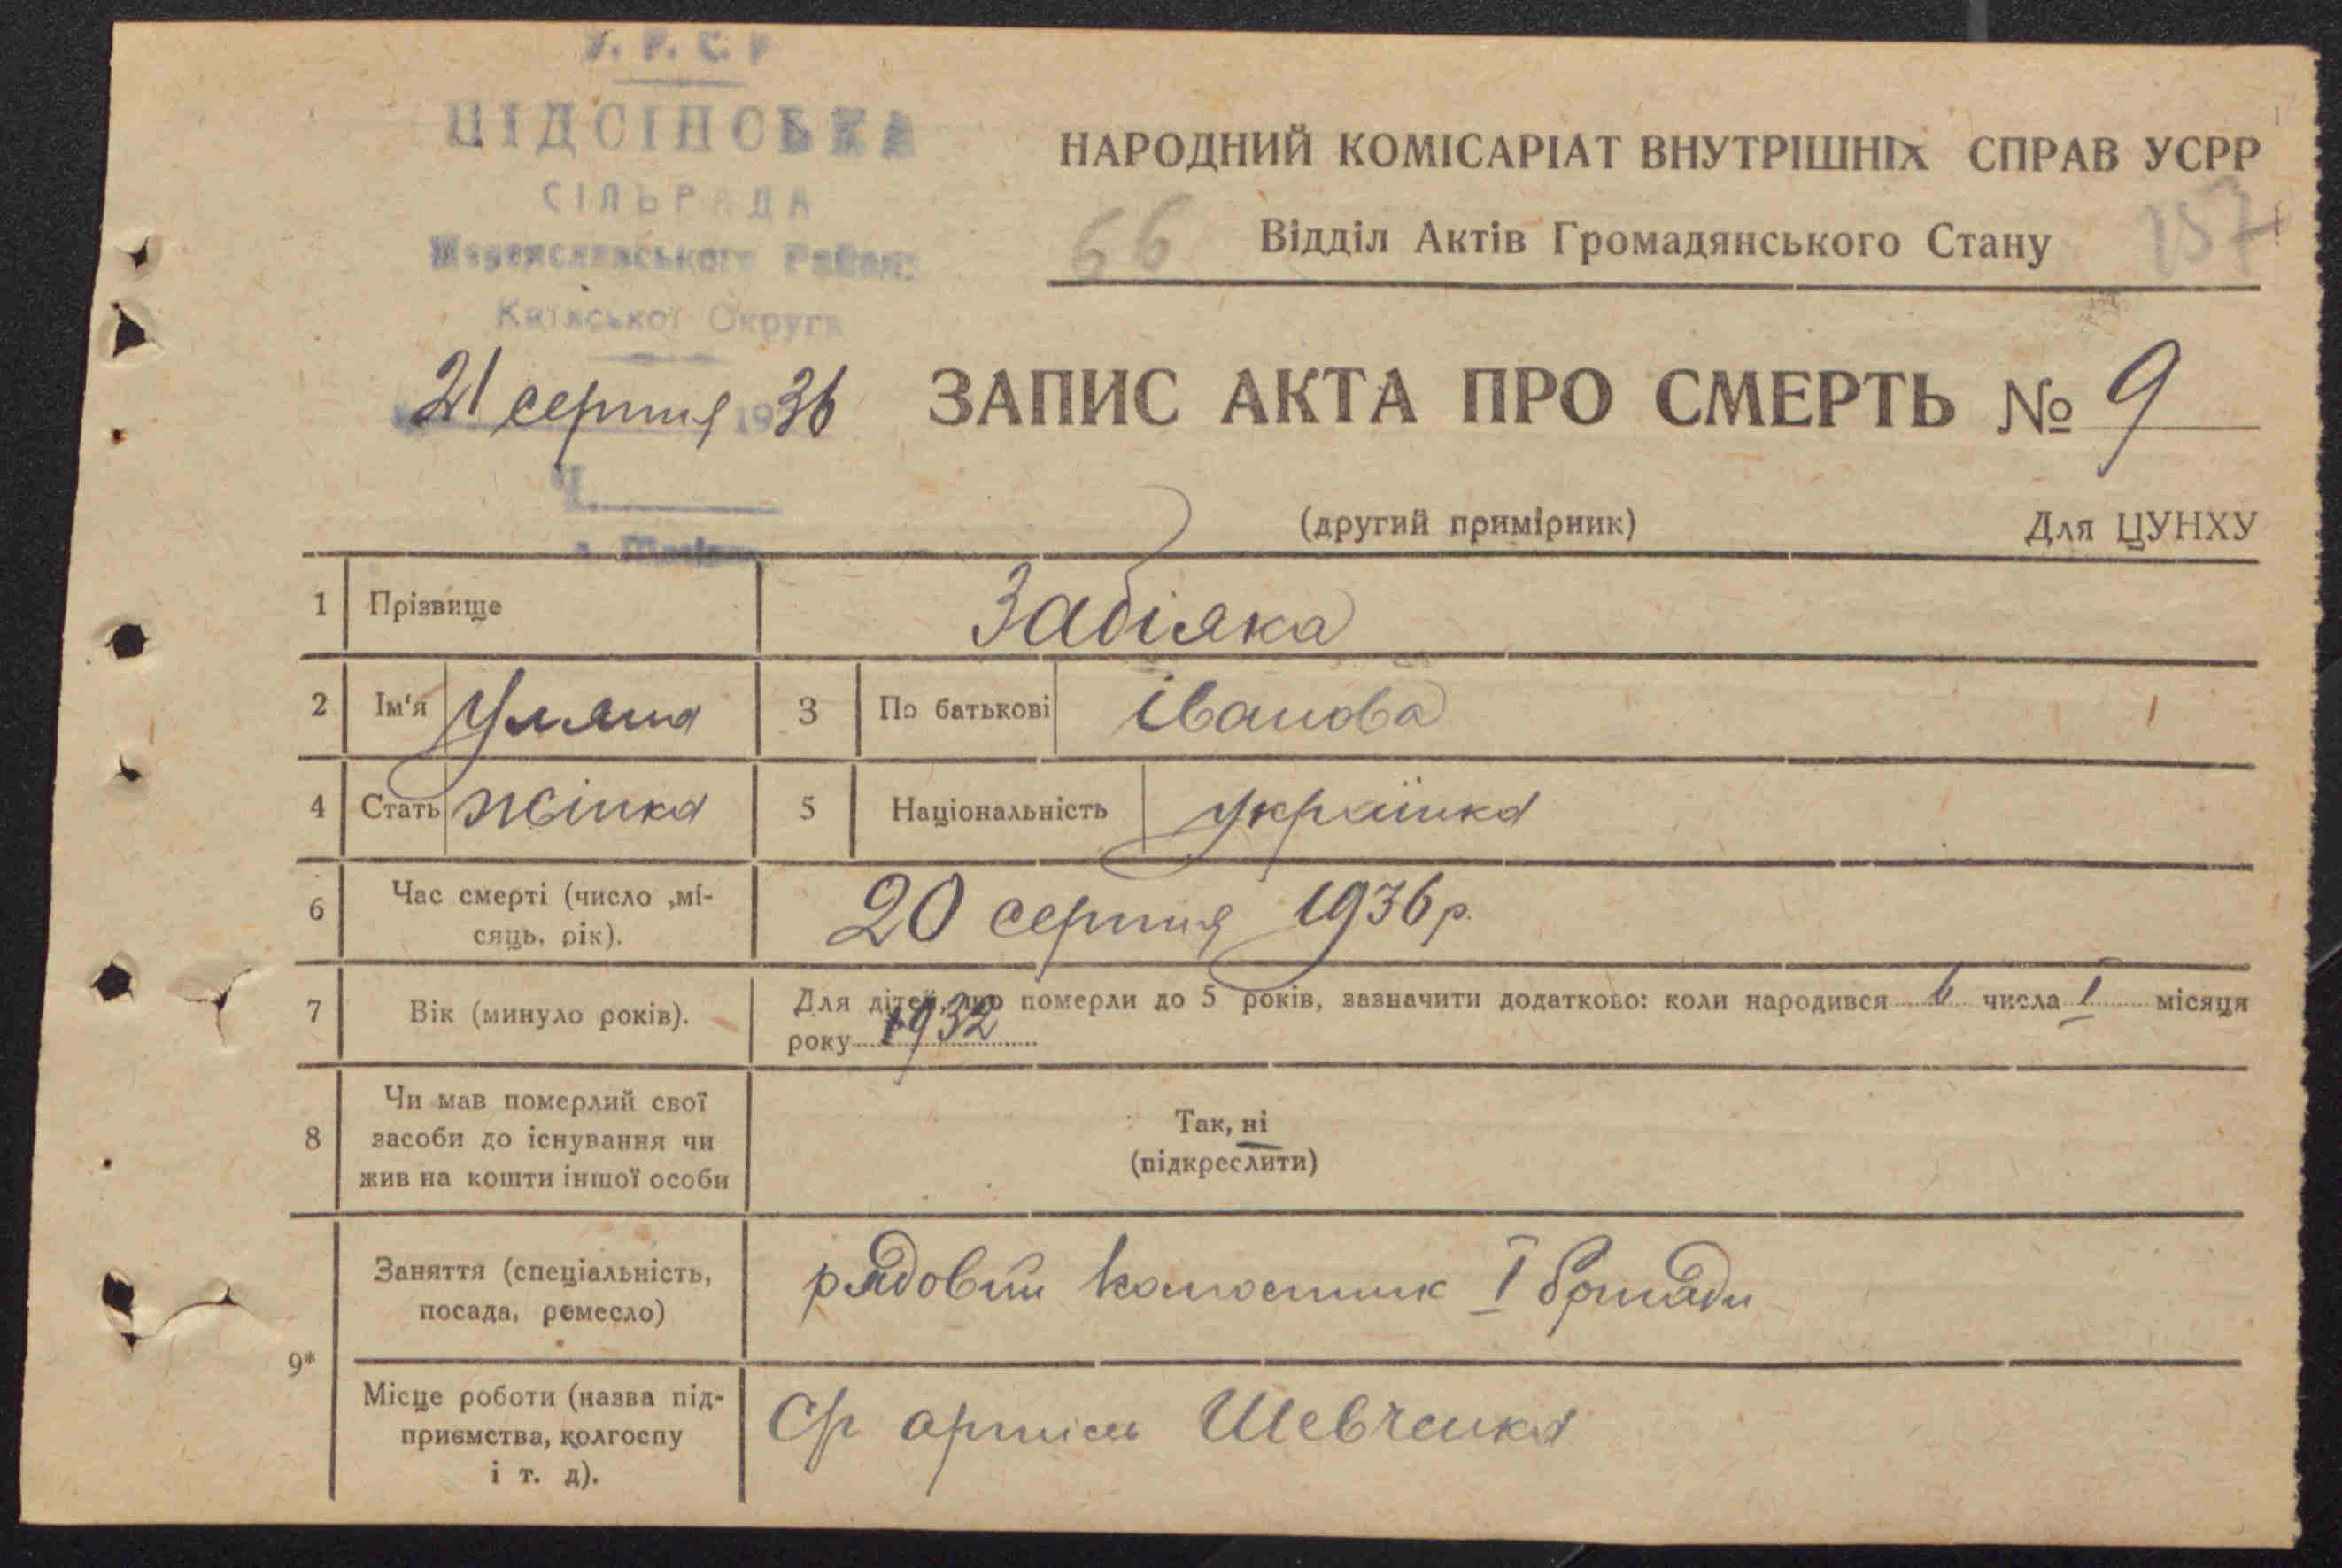 У.Р.С.Р
ПІДСІНОВКА
СІЛЬРАДА
Переяславського Району
Київської Округи
21 серпня 1936
Ч.
НАРОДНИЙ КОМІСАРІАТ ВНУТРІШНІХ СПРАВ УСРР
66 Відділ Актів Громадянського Стану 157
ЗАПИС АКТА ПРО СМЕРТЬ № 9
(другий примірник) Для ЦУНХУ
1 Прізвище Забіяка
2 Ім'я Уляна 3 По батькові Іванова
4 Стать жінка 5 Національність українка
6 Час смерті (число ,мі-
сяць, рік). 20 серпня 1936 р.
7 Вік (минуло років). Для дітей, що померли до 5 років, зазначити додатково: коли народився 6 числа I місяця
року 1932
8 Чи мав померлий свої
засоби до існування чи
жив на кошти іншої особи
Так, ні
(підкреслити)
9* Заняття (спеціальність,
посада, ремесло)
рядовий колгоспник I бригади
Місце роботи (назва під-
приємства, колгоспу
і т. д).
Ср артіль Шевченка